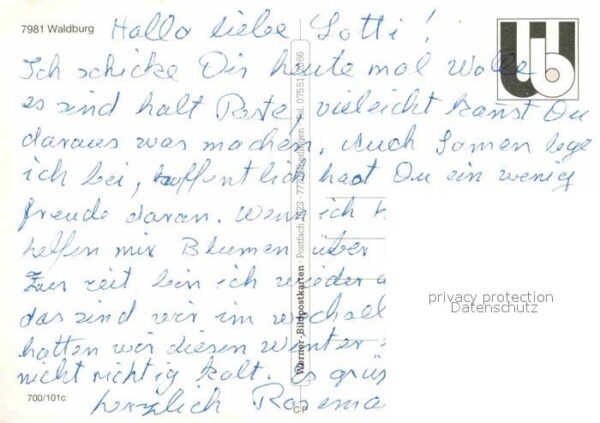 7981 Waldburg
Hallo liebe Lotti!
Ich schicke Dir heute mal Wolle
es sind halt Reste, vieleicht kanst Du
daraus was machen. Auch Samen lege
ich bei, hoffentlich hast Du ein wenig
freude daran. Wenn ich
helfen mir Blumen über
Zur zeit bin ich wieder
das sind wir im
hatten wir diesen Winter
nicht richtig kalt. Es grüs
herzlich Rosema
700/101c
Werner-Bildpostkarten · Postfach
C P
privacy protection
Datenschutz